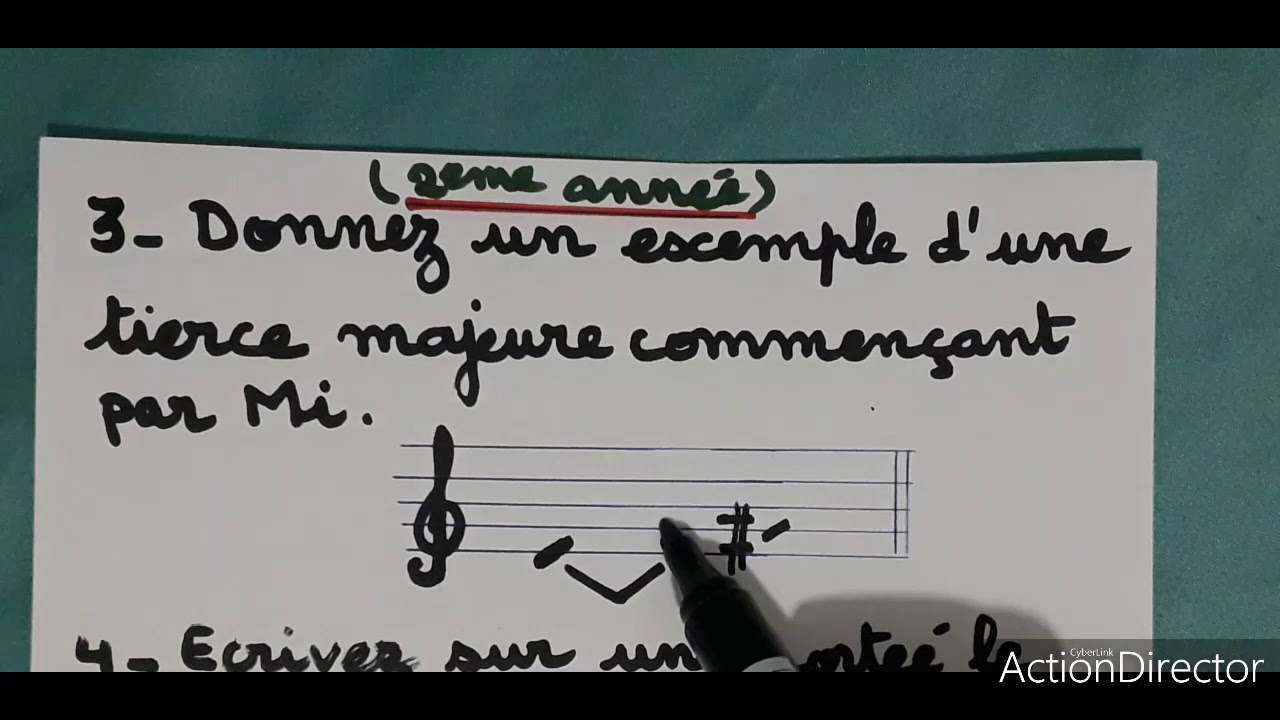 (2eme année)
3- Donnez un escemple d'une
tierce majeure commençant
par Mi.
4- Ecrivez sur un
CyberLink
ActionDirector